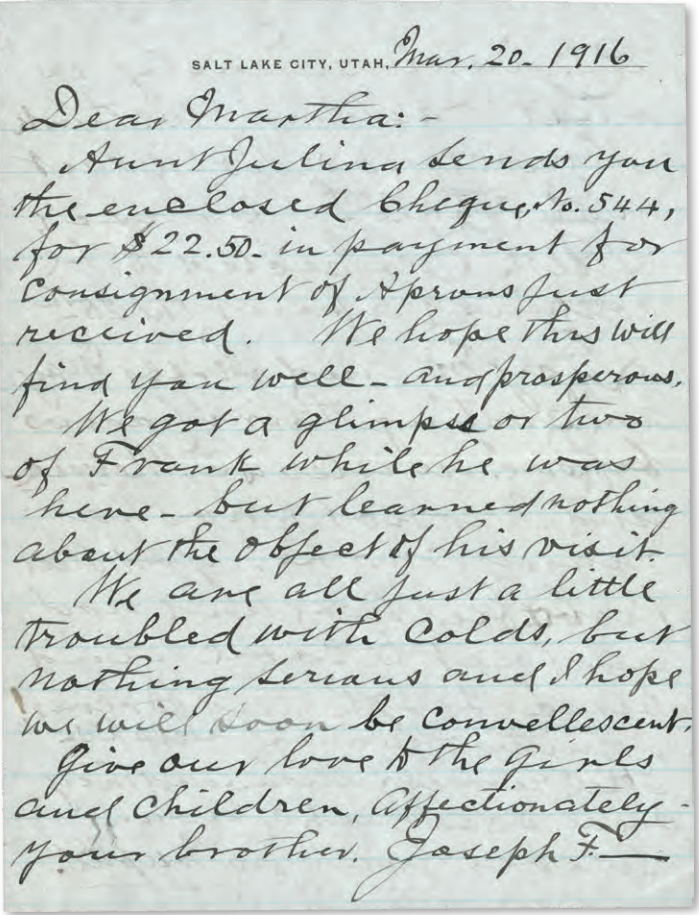 SALT LAKE CITY, UTAH, Mar. 20- 1916
Dear Martha:-
Aunt Julina sends you
the enclosed Cheque, No. 544,
for $22.50- in payment for
Consignment of Aprons just
received. We hope this will
find you well - and prosperous.
We got a glimpse or two
of Frank while he was
here - but learned nothing
about the object of his visit.
We are all just a little
troubled with colds, but
nothing serious and I hope
we will soon be convellescent.
Give our love to the Girls
and Children, Affectionately -
your brother. Joseph F.—